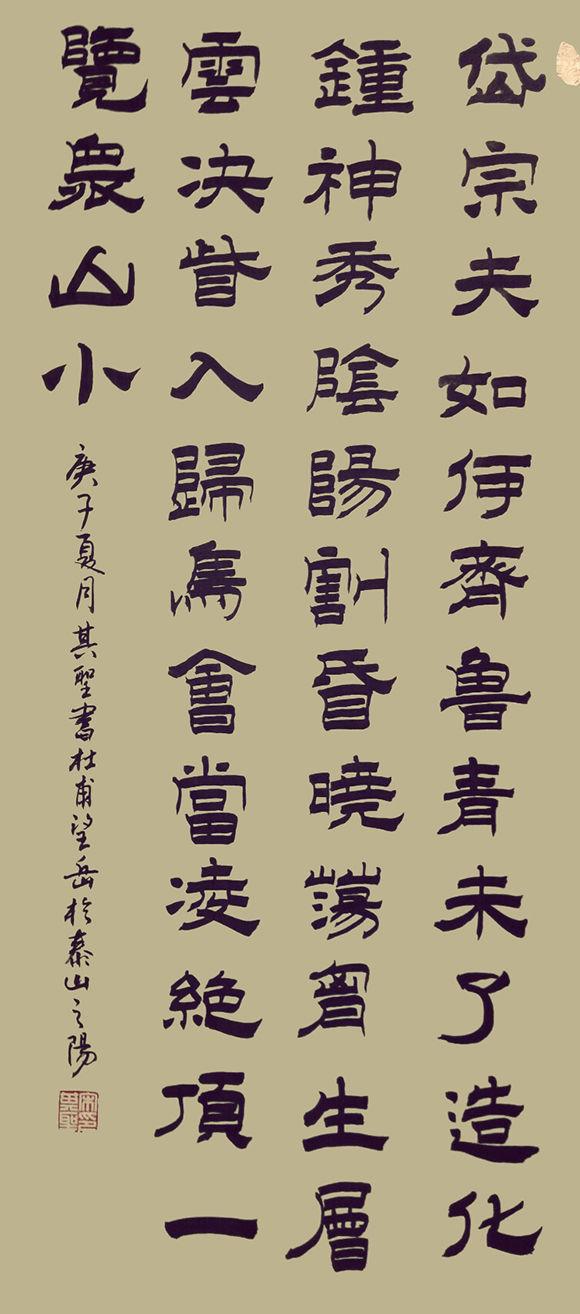 岱宗夫如何齊魯青未了造化
鍾神秀陰陽割昏曉蕩胷生層
雲决眥入歸鳥會當凌絶頂一
覽衆山小
庚子夏月其聖書杜甫望岳於泰山之陽